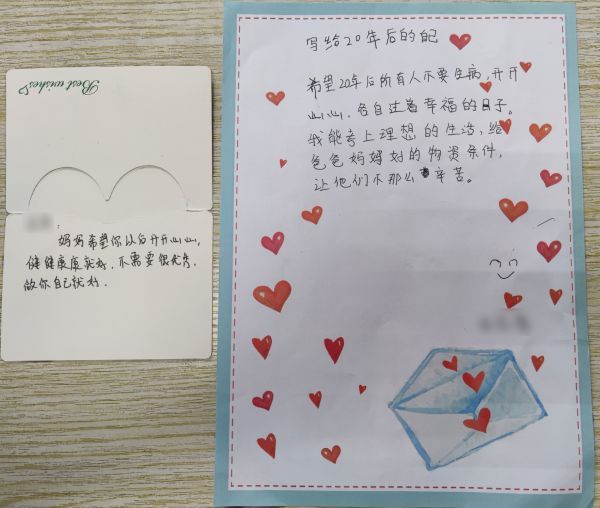 Best wishes
妈妈希望你以后开开心心,
健健康康就好,不需要很优秀,
做你自己就好.
写给20年后的自己
希望20年后所有人不要生病,开开
心心,各自过着幸福的日子。
我能考上理想的生活,给
爸爸妈妈好的物资条件,
让他们不那么辛苦。